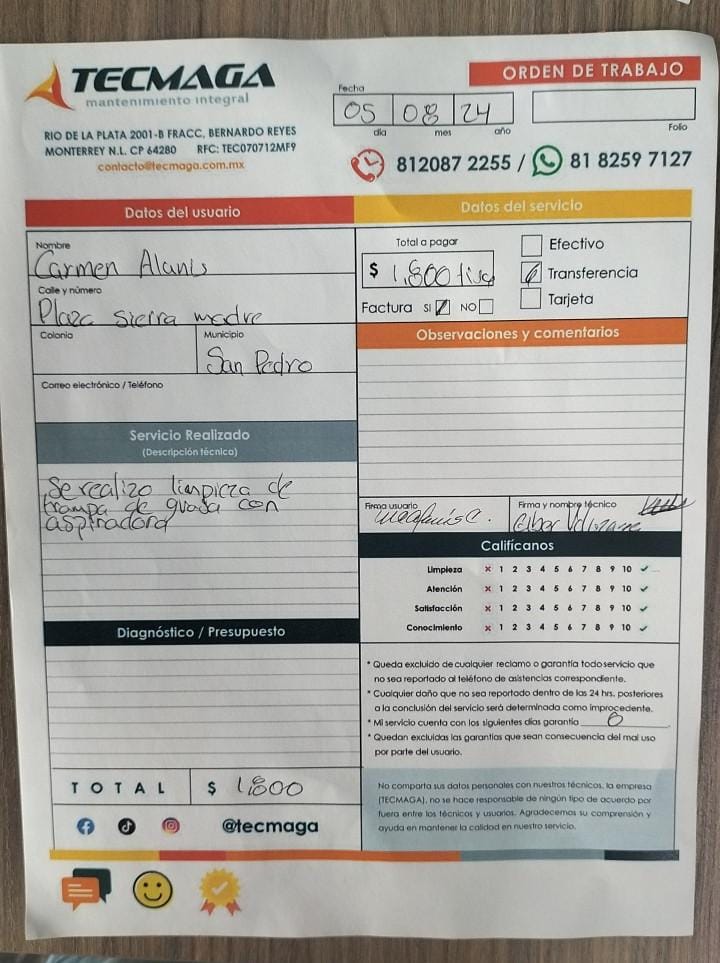 TECMAGA
mantenimiento integral
RIO DE LA PLATA 2001-B FRACC. BERNARDO REYES
MONTERREY N.L. CP 64280 RFC: TEC070712MF9
contacto@tecmaga.com.mx
ORDEN DE TRABAJO
Fecha
05 08 24
día mes año
Folio
812087 2255 / 81 8259 7127
Datos del usuario
Nombre
Carmen Alanis
Calle y número
Plaza Sierra madre
Colonia
Municipio
San Pedro
Correo electrónico / Teléfono
Servicio Realizado
(Descripción técnica)
Se realizo limpieza de
trampa de grasa con
aspiradora
Diagnóstico / Presupuesto
TOTAL $ 1,800
@tecmaga
Datos del servicio
Total a pagar
$ 1,800
Efectivo
Transferencia
Tarjeta
Factura SI NO
Observaciones y comentarios
Firma usuario
Firma y nombre técnico
Califícanos
Limpieza × 1 2 3 4 5 6 7 8 9 10 ✓
Atención × 1 2 3 4 5 6 7 8 9 10 ✓
Satisfacción × 1 2 3 4 5 6 7 8 9 10 ✓
Conocimiento × 1 2 3 4 5 6 7 8 9 10 ✓
* Queda excluido de cualquier reclamo o garantía todo servicio que
no sea reportado al teléfono de asistencias correspondiente.
* Cualquier daño que no sea reportado dentro de las 24 hrs. posteriores
a la conclusión del servicio será determinada como improcedente.
* Mi servicio cuenta con los siguientes días garantía
* Quedan excluidas las garantías que sean consecuencia del mal uso
por parte del usuario.
No comparta sus datos personales con nuestros técnicos, la empresa
(TECMAGA), no se hace responsable de ningún tipo de acuerdo por
fuera entre los técnicos y usuarios. Agradecemos su comprensión y
ayuda en mantener la calidad en nuestro servicio.